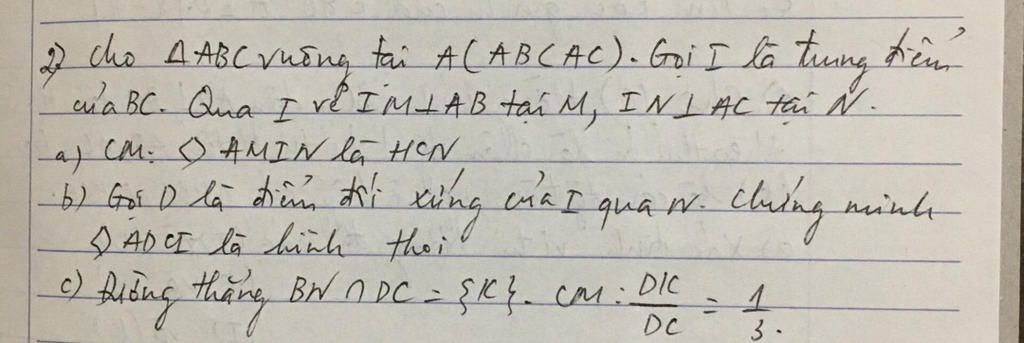 2) Cho ΔABC vuông tại A (AB<AC). Gọi I là trung điểm
của BC. Qua I vẽ IM⊥AB tại M, IN⊥AC tại N.
a) CM: ◊ AMIN là HCN
b) Gọi D là điểm đối xứng của I qua N. Chứng minh
◊ ADCI là hình thoi
c) Đường thẳng BN ∩ DC = {K}. CM: DK/DC = 1/3.